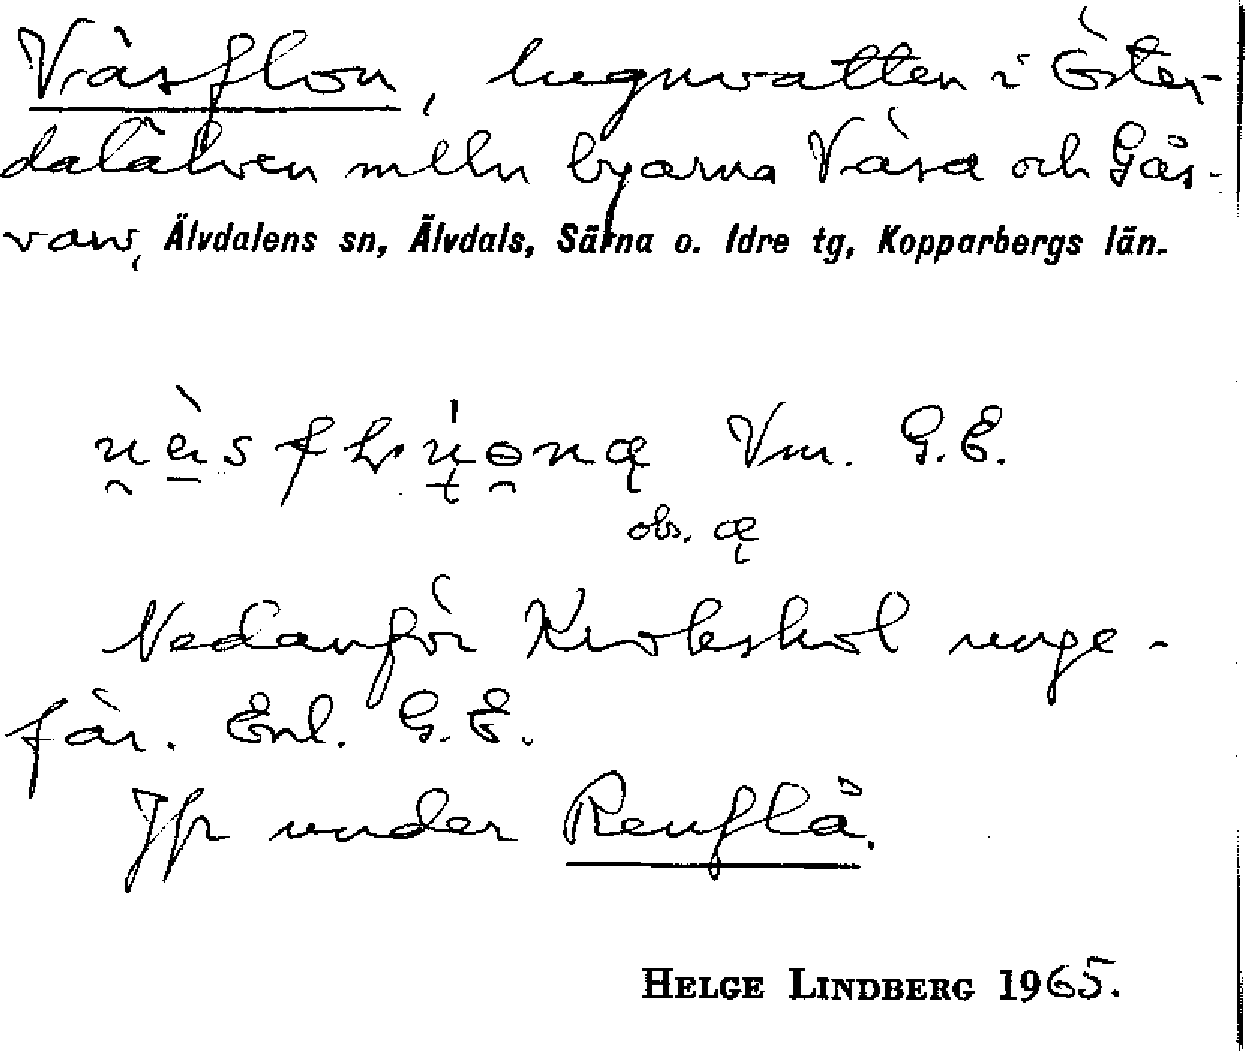 Väsflon, lugnvatten i Öster-
dalälven melln byarna Väsa och Gås-
varv, Älvdalens sn, Älvdals, Särna o. Idre tg, Kopparbergs län.
Vm. G.E.
obs. æ̨
Nedanför Krokskol unge-
fär. Enl. G.E.
Jfr under Renflå.
HELGE LINDBERG 1965.